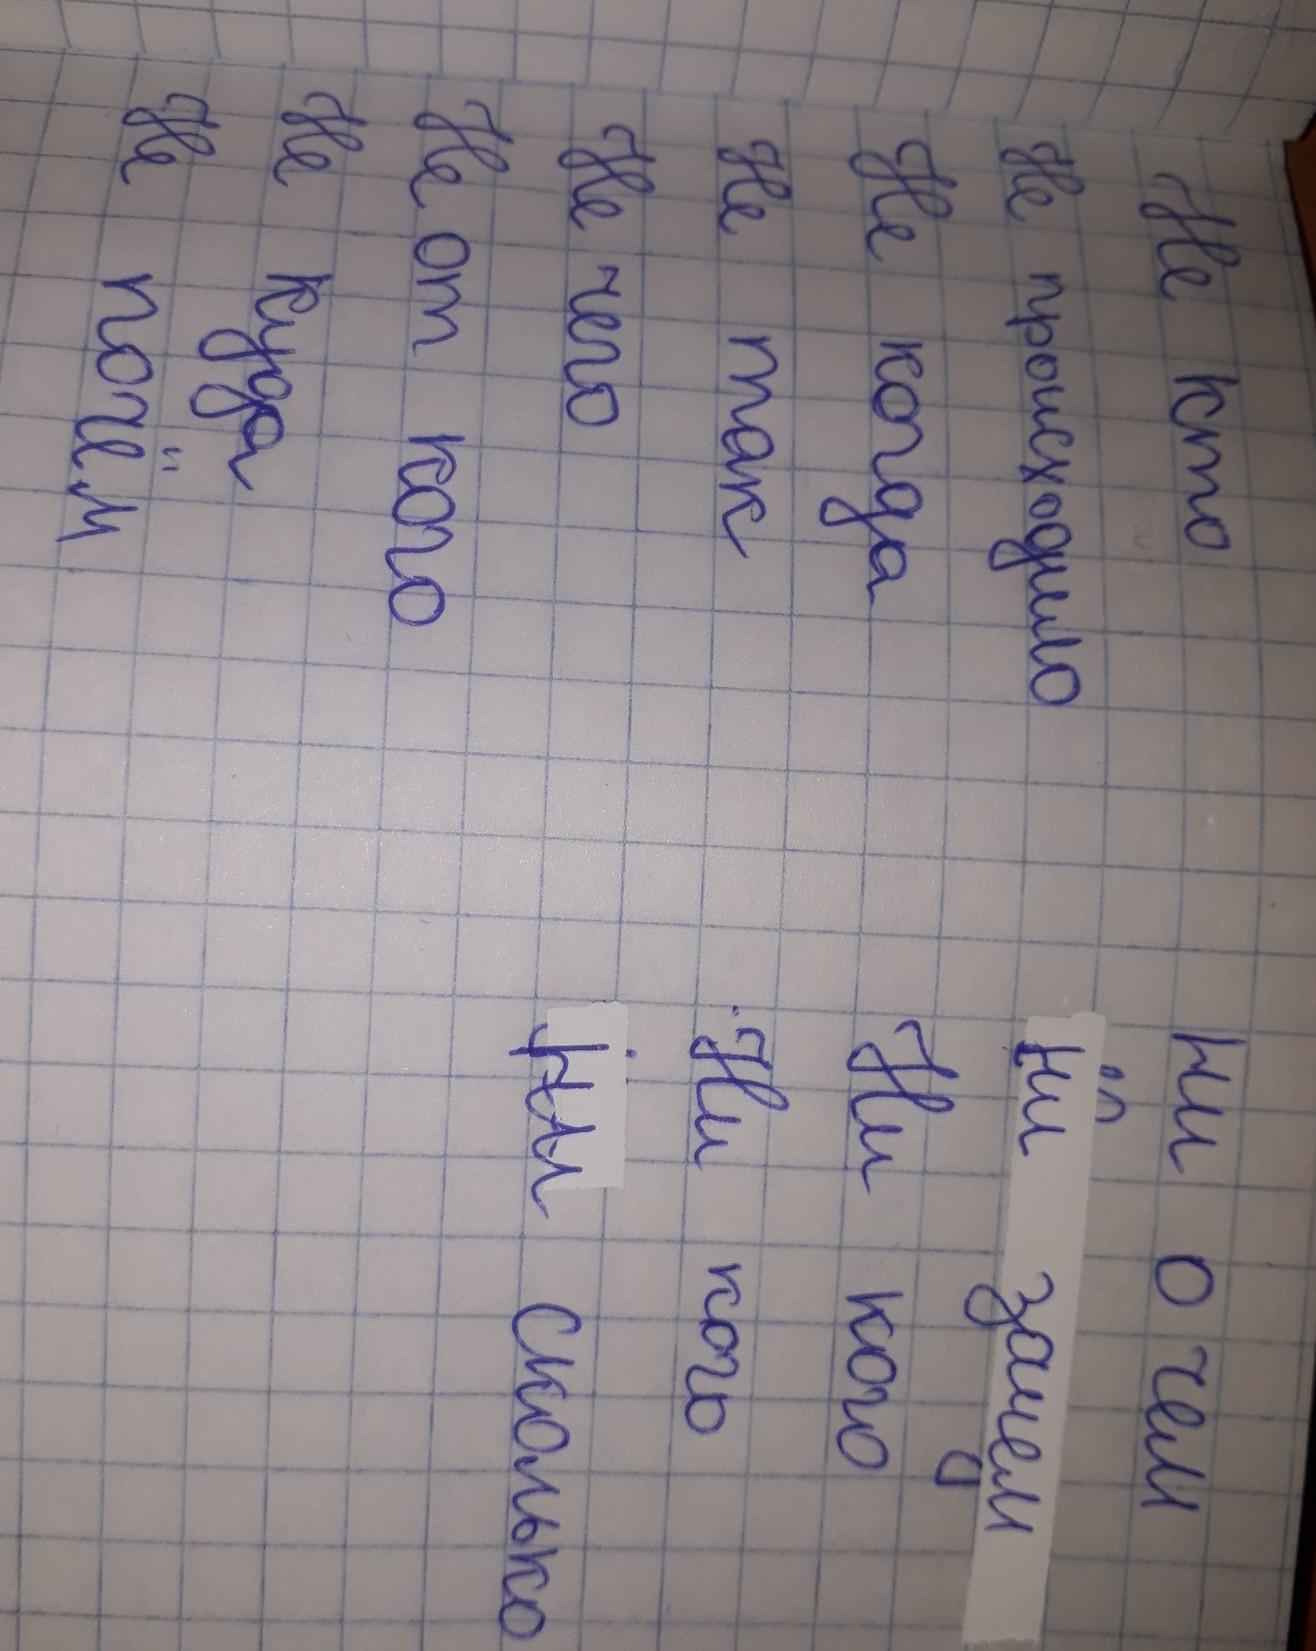 Не кто
Не происходило
Не когда
Не так
Не чего
Не от кого
Не куда
Не почём
Ни о чем
Ни зачем
Ни кого
Ни кого
Ни Сколько